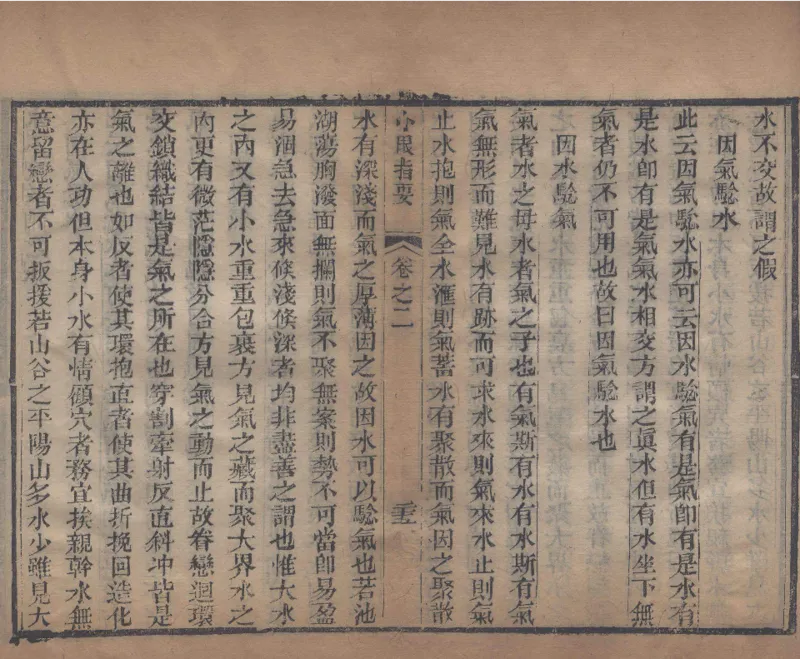 水不交故謂之假
因氣騐水
此云因氣騐水亦可云因水騐氣有是氣卽有是水有
是水卽有是氣氣水相交方謂之眞水但有水坐下無
氣者仍不可用也故曰因氣騐水也
因水騐氣
氣者水之母水者氣之子也有氣斯有水有水斯有氣
氣無形而難見水有跡而可求水來則氣來水止則氣
止水抱則氣全水滙則氣蓄水有聚散而氣因之聚散
心眼指要 卷之二
水有深淺而氣之厚薄因之故因水可以騐氣也若池
湖蕩胸潑面無攔則氣不聚無案則勢不可當卽易盈
易涸急去急來倏淺倏深者均非盡善之謂也惟大水
之內又有小水重重包裹方見氣之藏而聚大界水之
內更有微茫隱隱分合方見氣之動而止故眷戀迴環
交鎖織結皆是氣之所在也穿割牽射反直斜冲皆是
氣之離也如反者使其環抱直者使其曲折挽回造化
亦在人功但本身小水有情顧穴者務宜挨親幹水無
意留戀者不可扳援若山谷之平陽山多水少雖見大